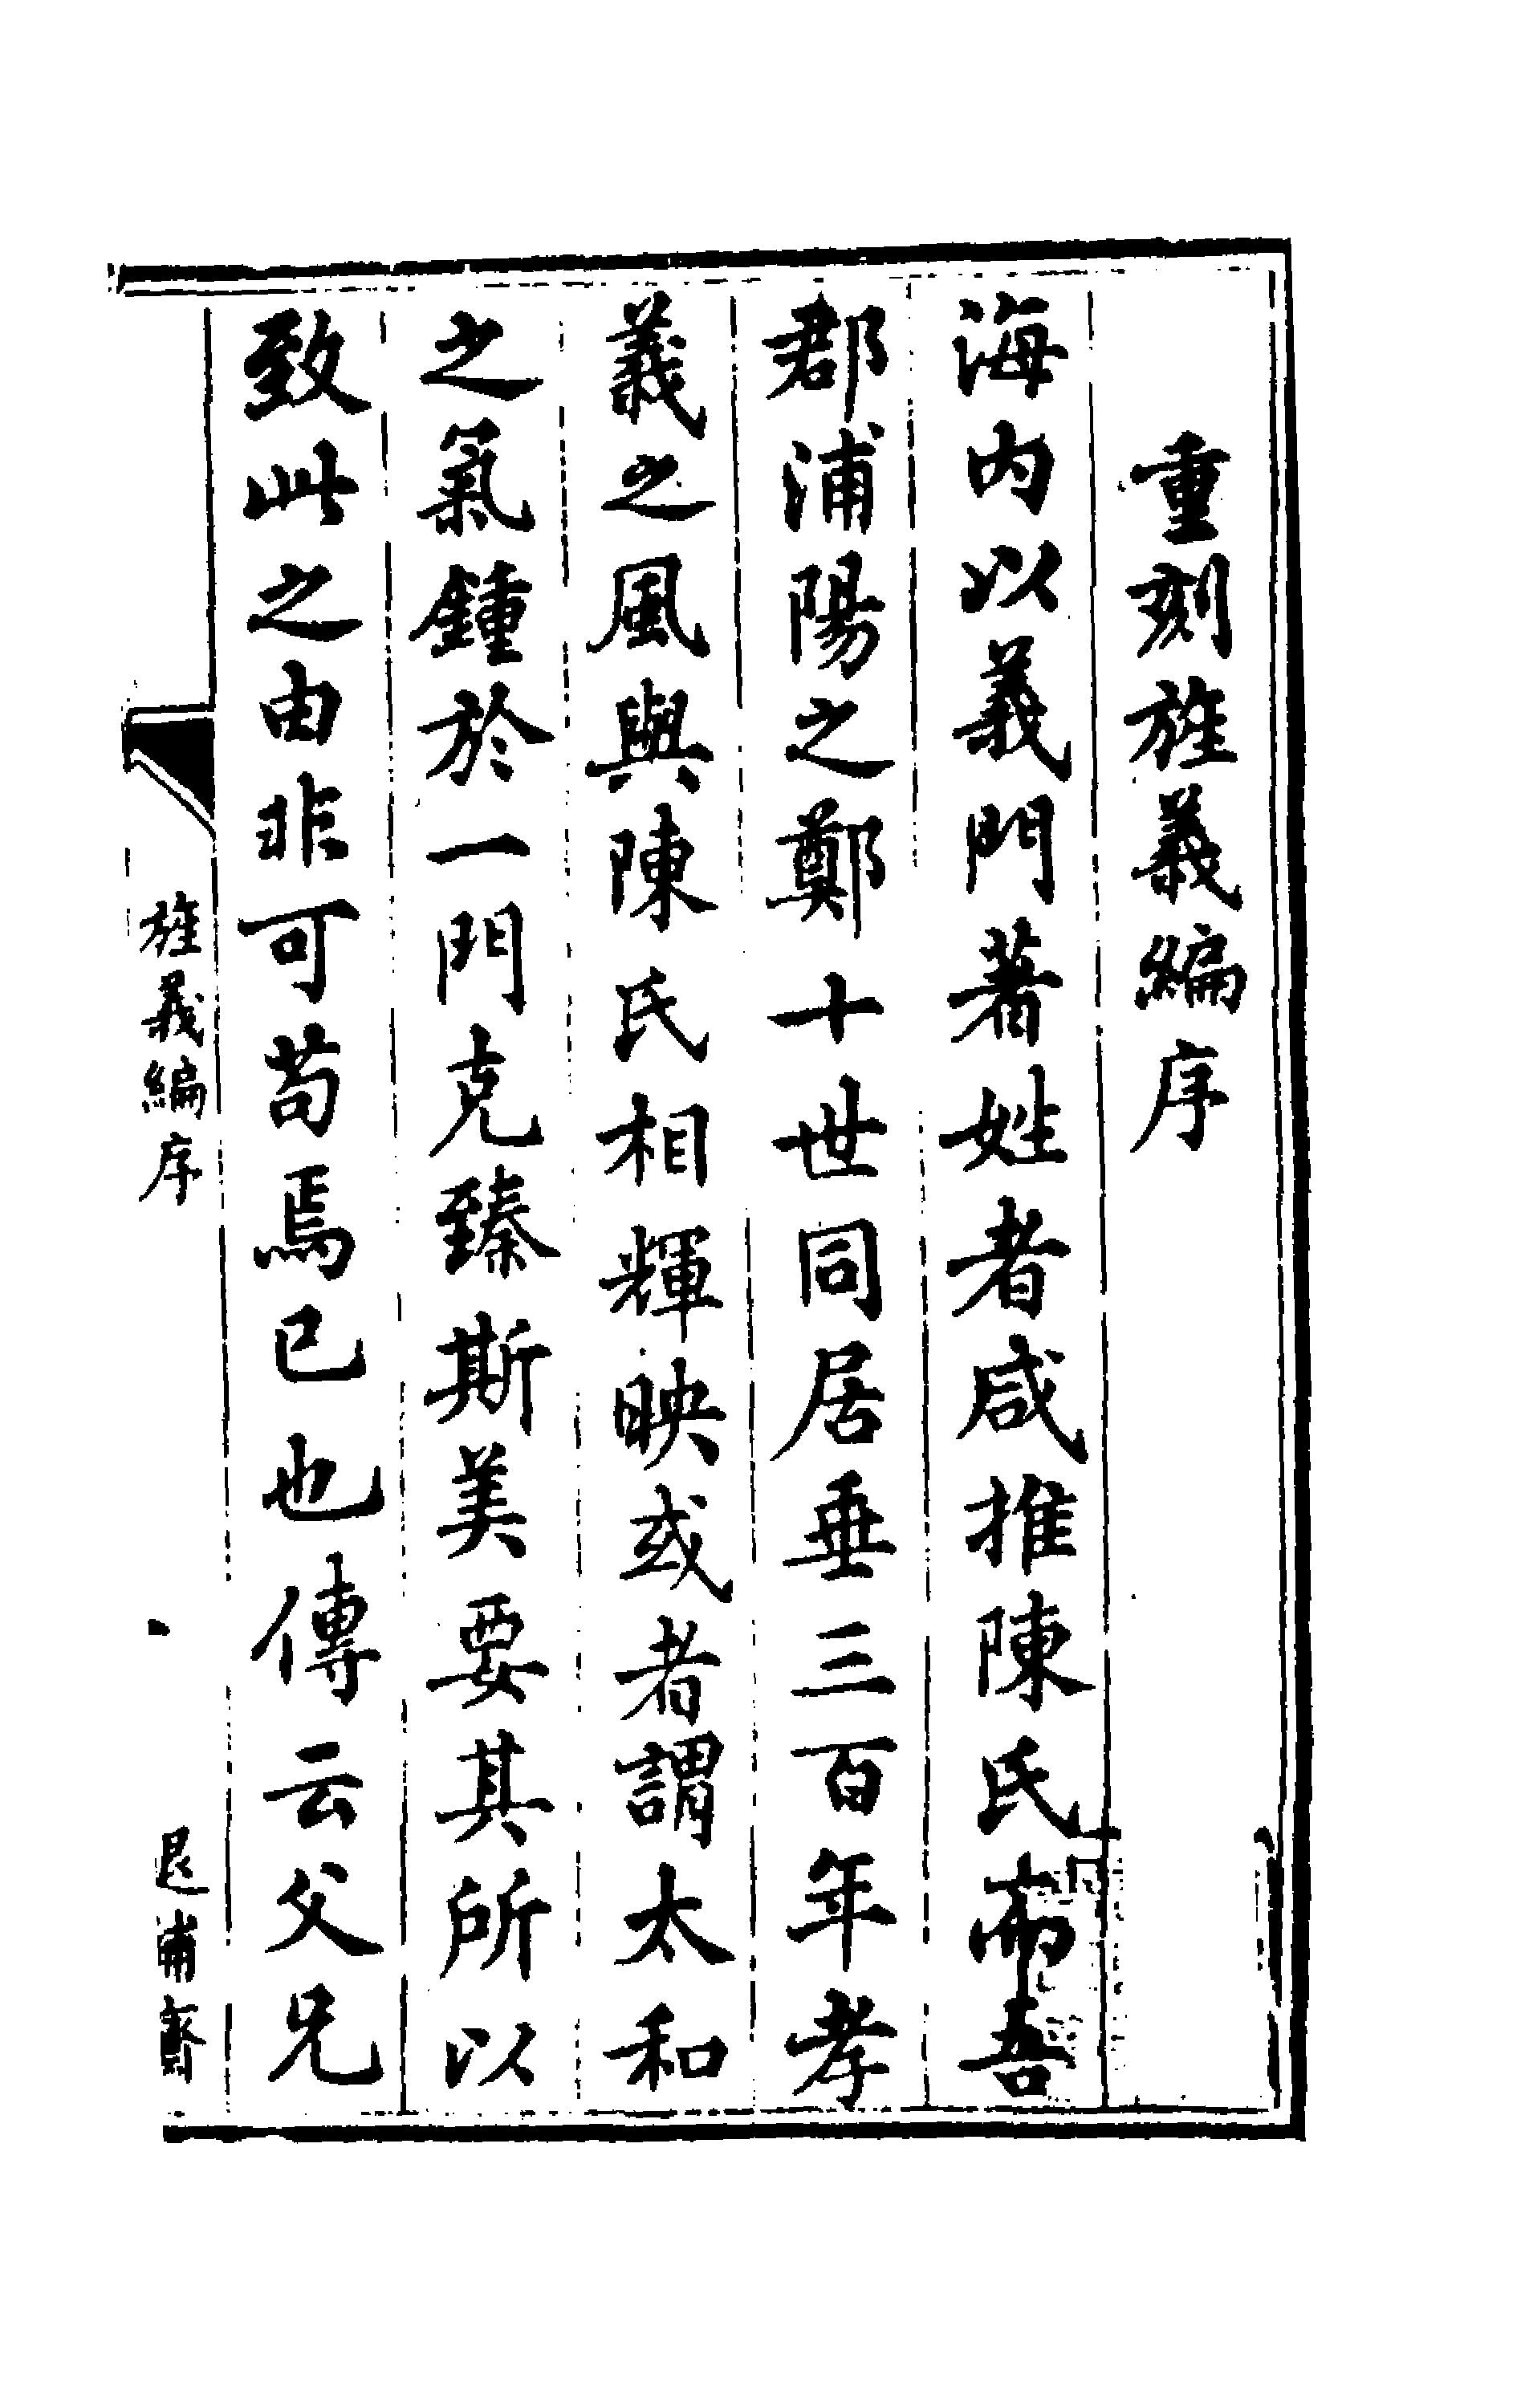 重刻旌義編序
海内以義門著姓者咸推陳氏而吾
郡浦陽之鄭十世同居垂三百年孝
義之風與陳氏相輝映或者謂太和
之氣鍾於一門克臻斯美要其所以
致此之由非可苟焉已也傳云父兄
旌義編序
退補齋